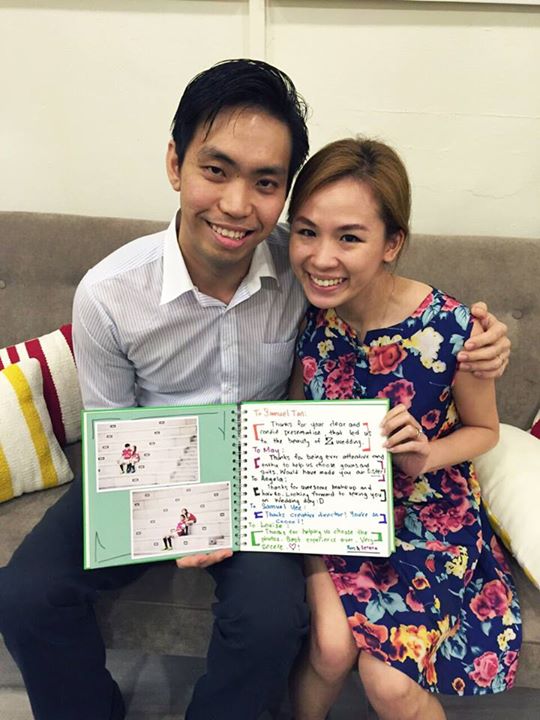 To Samuel Tan:
Thanks for your clear and
candid presentation that led us
to the beauty of Z wedding.
To May:
Thanks for being extra attentive and
enthu to help us choose gowns and
suits. Would have made you our sister!
To Angela:
Thanks for awesome makeup and
hairdo. Looking forward to seeing you
on wedding day :D
To Samuel Yee:
Thanks creative director! You're so
coool!
To Louise:
Thanks for helping us choose the
photos. Best experience ever. Very
sincere ♡!
& Serena